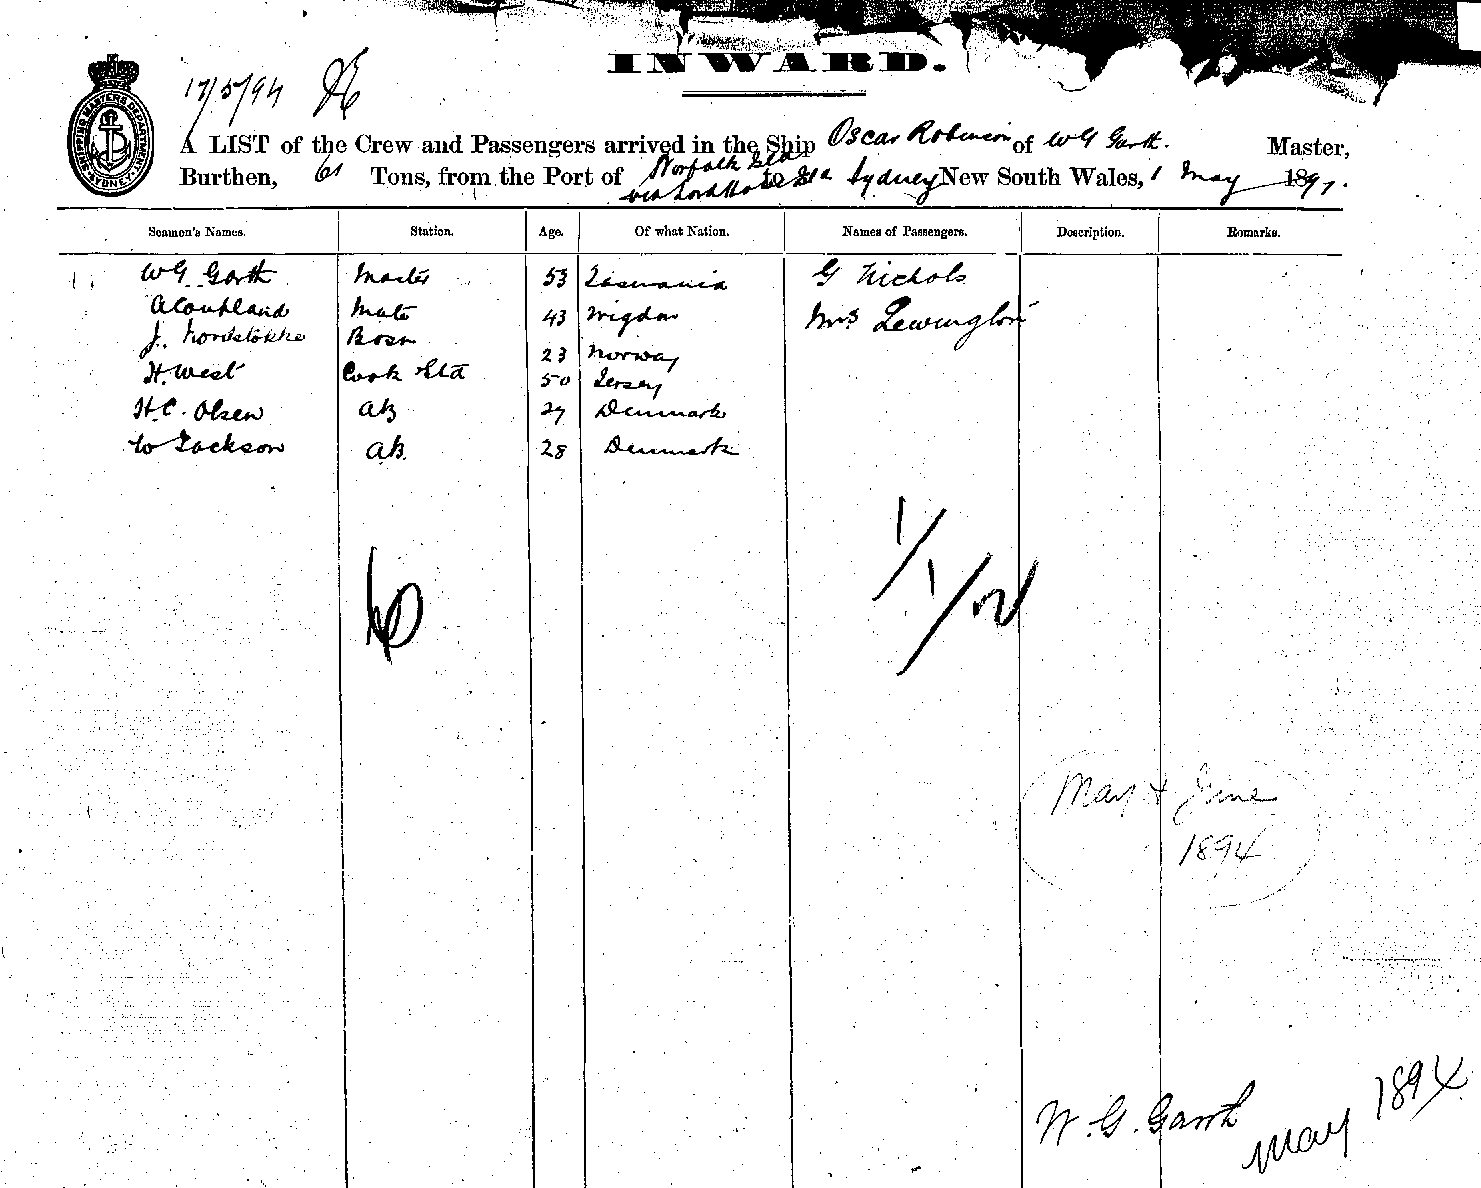 INWARD.
17/5/94
A LIST of the Crew and Passengers arrived in the Ship Oscar Robinson of W G Garth. Master,
Burthen, 61 Tons, from the Port of Norfolk Isld via Lord Howe Isd to Sydney New South Wales, 1 May 1894.
SHIPPING MASTERS DEPARTMENT SYDNEY
Seamen's Names. Station. Age. Of what Nation. Names of Passengers. Description. Remarks.
W G. Garth Master 53 Tasmania G Nichols
A Coupland Mate 43 Wigdon Mrs Lewington
J. Nordstokke Bosn 23 Norway
H. West Cook &td 50 Jersey
H.C. Olsen AB 27 Denmark
W Jackson AB. 28 Denmark
6
1/1/02
May & June
1894
W. G. Garth
May 1894